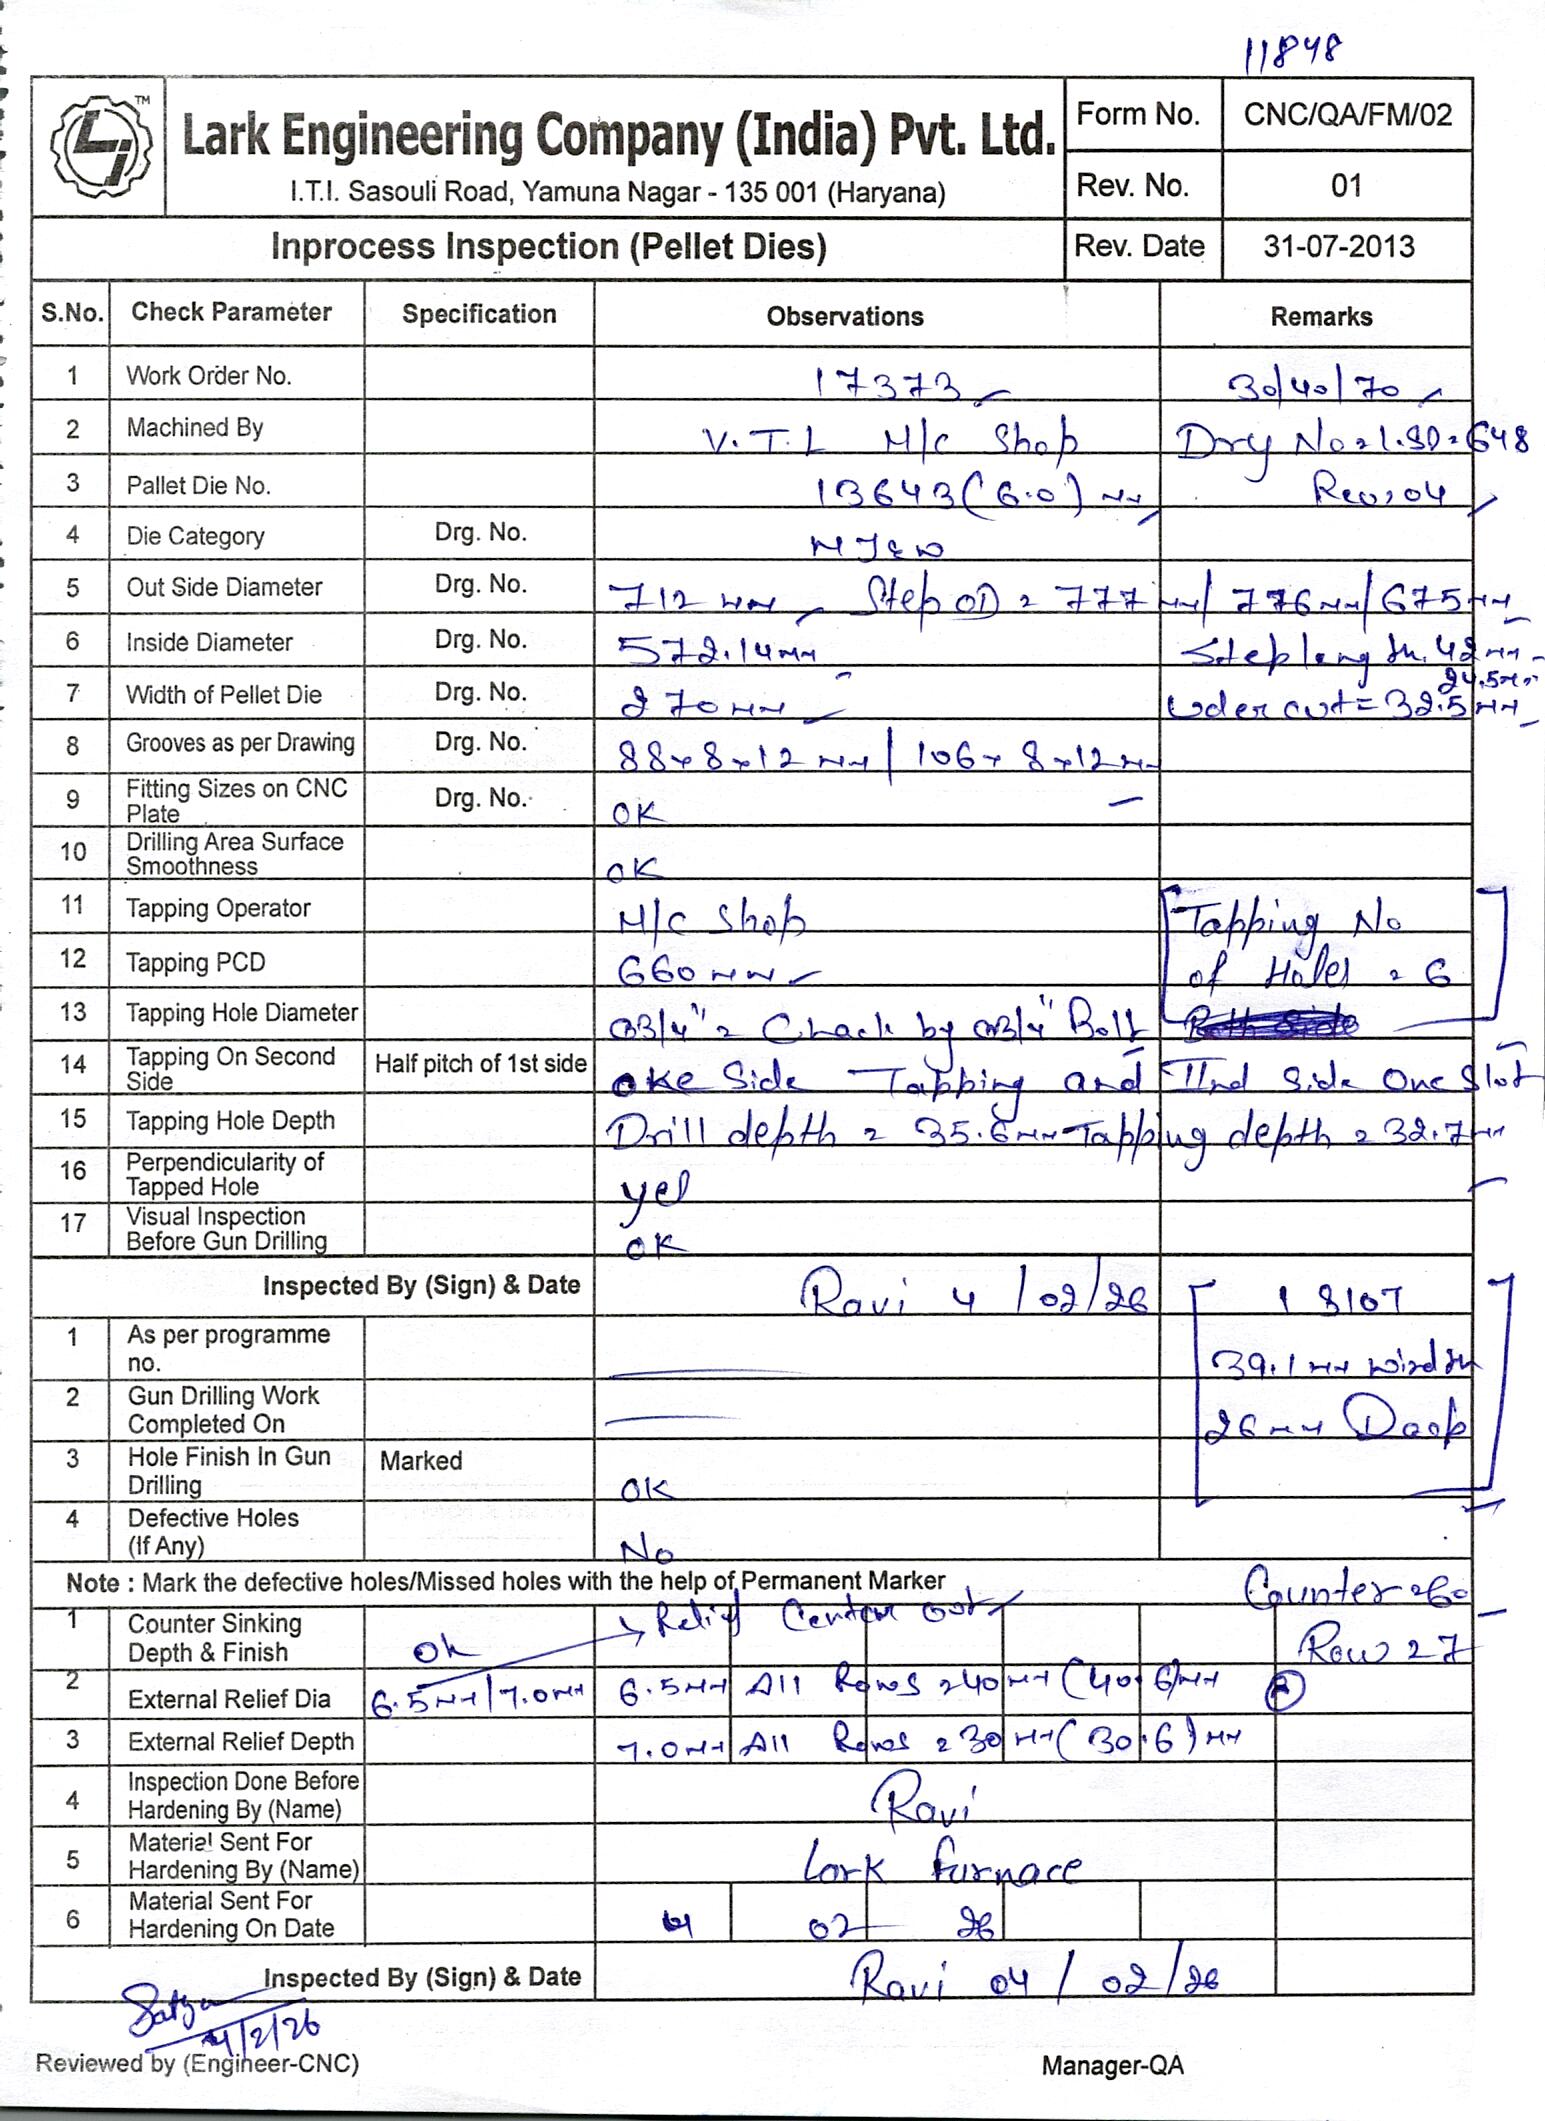 11848
LI TM
Lark Engineering Company (India) Pvt. Ltd.
I.T.I. Sasouli Road, Yamuna Nagar - 135 001 (Haryana)
Form No. CNC/QA/FM/02
Rev. No. 01
Inprocess Inspection (Pellet Dies) Rev. Date 31-07-2013
S.No. Check Parameter Specification Observations Remarks
1 Work Order No. 17373 30/40/70
2 Machined By V.T.L M/C Shop Drg No = L.SD = 648
3 Pallet Die No. 13643 (6.0) mm Rev: 04
4 Die Category Drg. No.
5 Out Side Diameter Drg. No. 712 mm Step OD = 777 mm/ 776 mm/ 675 mm
6 Inside Diameter Drg. No. 572.14 mm Step length. 42 mm
24.5 mm
7 Width of Pellet Die Drg. No. 270 mm Uder cut = 32.5 mm
8 Grooves as per Drawing Drg. No. 88 x 8 x 12 mm / 106 x 8 x 12 mm
9 Fitting Sizes on CNC Plate Drg. No. OK
10 Drilling Area Surface Smoothness OK
11 Tapping Operator M/C Shop Tapping No
12 Tapping PCD 660 mm of Holes = 6
13 Tapping Hole Diameter Ø3/4" = Chack by Ø3/4" Bolt
14 Tapping On Second Side Half pitch of 1st side oke Side Tapping and IInd Side One Slot
15 Tapping Hole Depth Drill depth = 35.6 mm Tapping depth = 32.7 mm
16 Perpendicularity of Tapped Hole yes
17 Visual Inspection Before Gun Drilling OK
Inspected By (Sign) & Date Ravi 4/02/26 18107
1 As per programme no. 39.1 mm windth
2 Gun Drilling Work Completed On 26 mm Deep
3 Hole Finish In Gun Drilling Marked OK
4 Defective Holes (If Any) No
Note : Mark the defective holes/Missed holes with the help of Permanent Marker Counter = 60
1 Counter Sinking Depth & Finish Ok Relief Center out Row = 27
2 External Relief Dia 6.5 mm/7.0 mm 6.5 mm All Rows = 40 mm (40.6) mm
3 External Relief Depth 7.0 mm All Rows = 30 mm (30.6) mm
4 Inspection Done Before Hardening By (Name) Ravi
5 Material Sent For Hardening By (Name) Lark furnace
6 Material Sent For Hardening On Date 4 02 26
Inspected By (Sign) & Date Ravi 04/02/26
Satya
4/2/26
Reviewed by (Engineer-CNC) Manager-QA